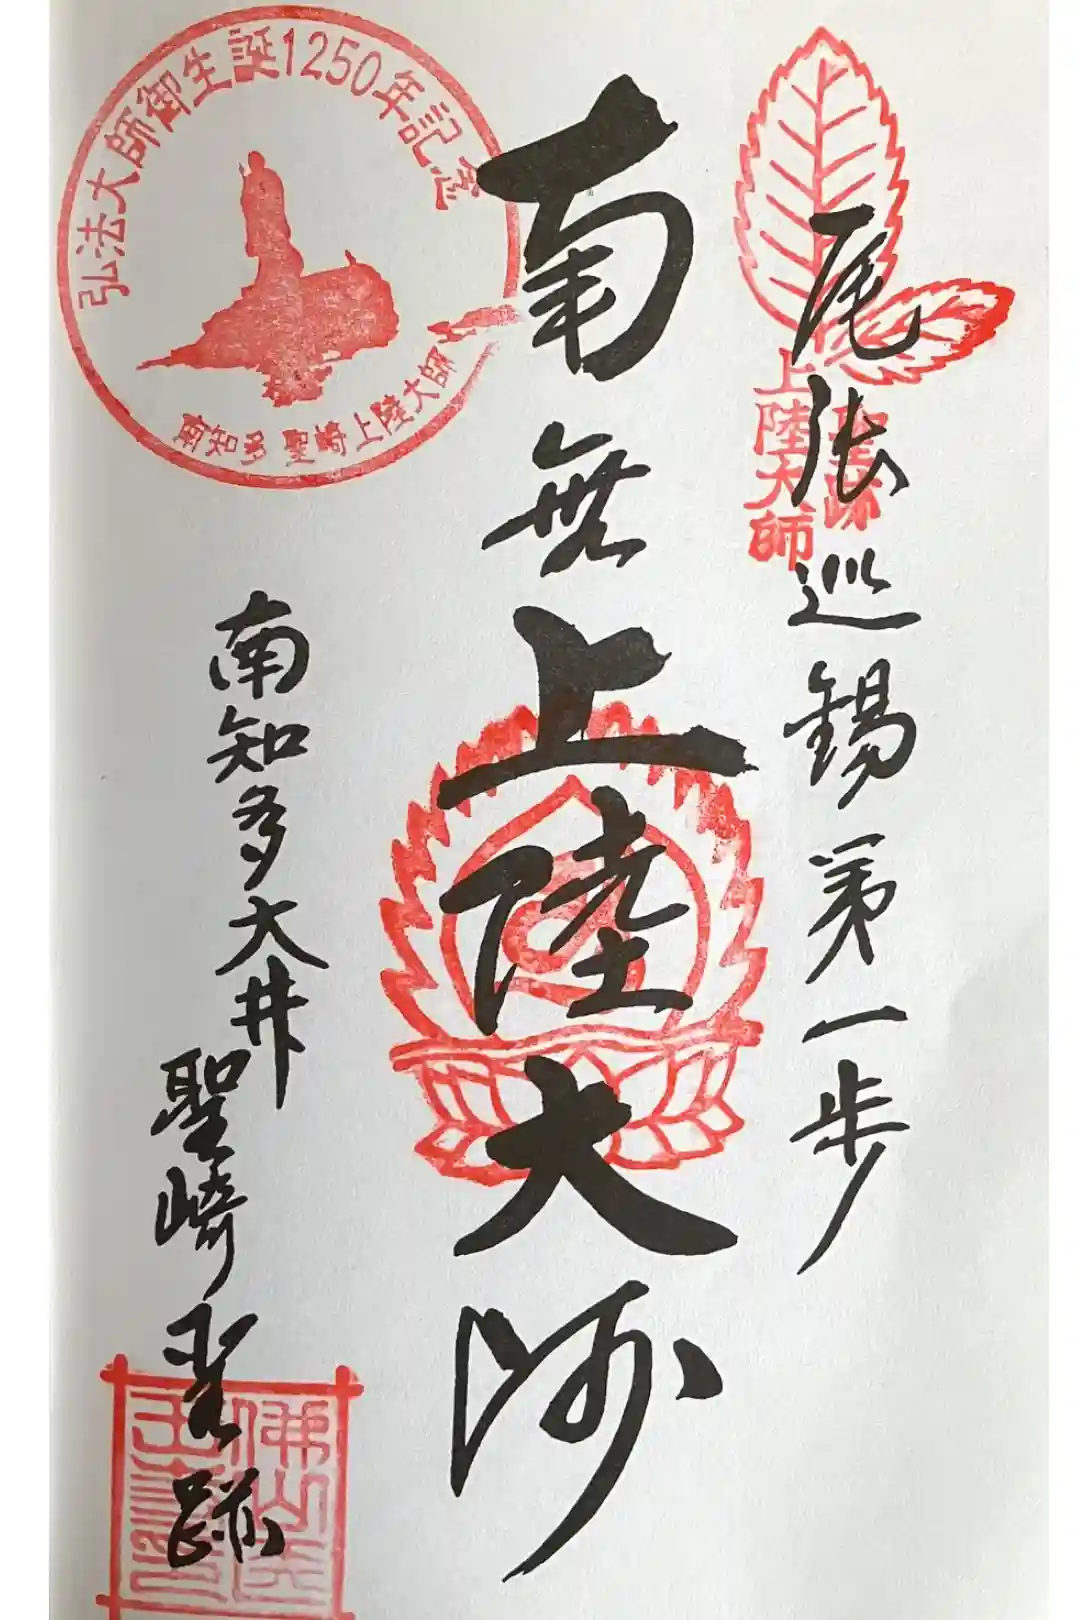 尾張巡錫第一歩
聖跡
上陸大師
南無上陸大師
弘法大師御生誕1250年記念
南知多 聖崎上陸大師
南知多大井
聖崎聖蹟